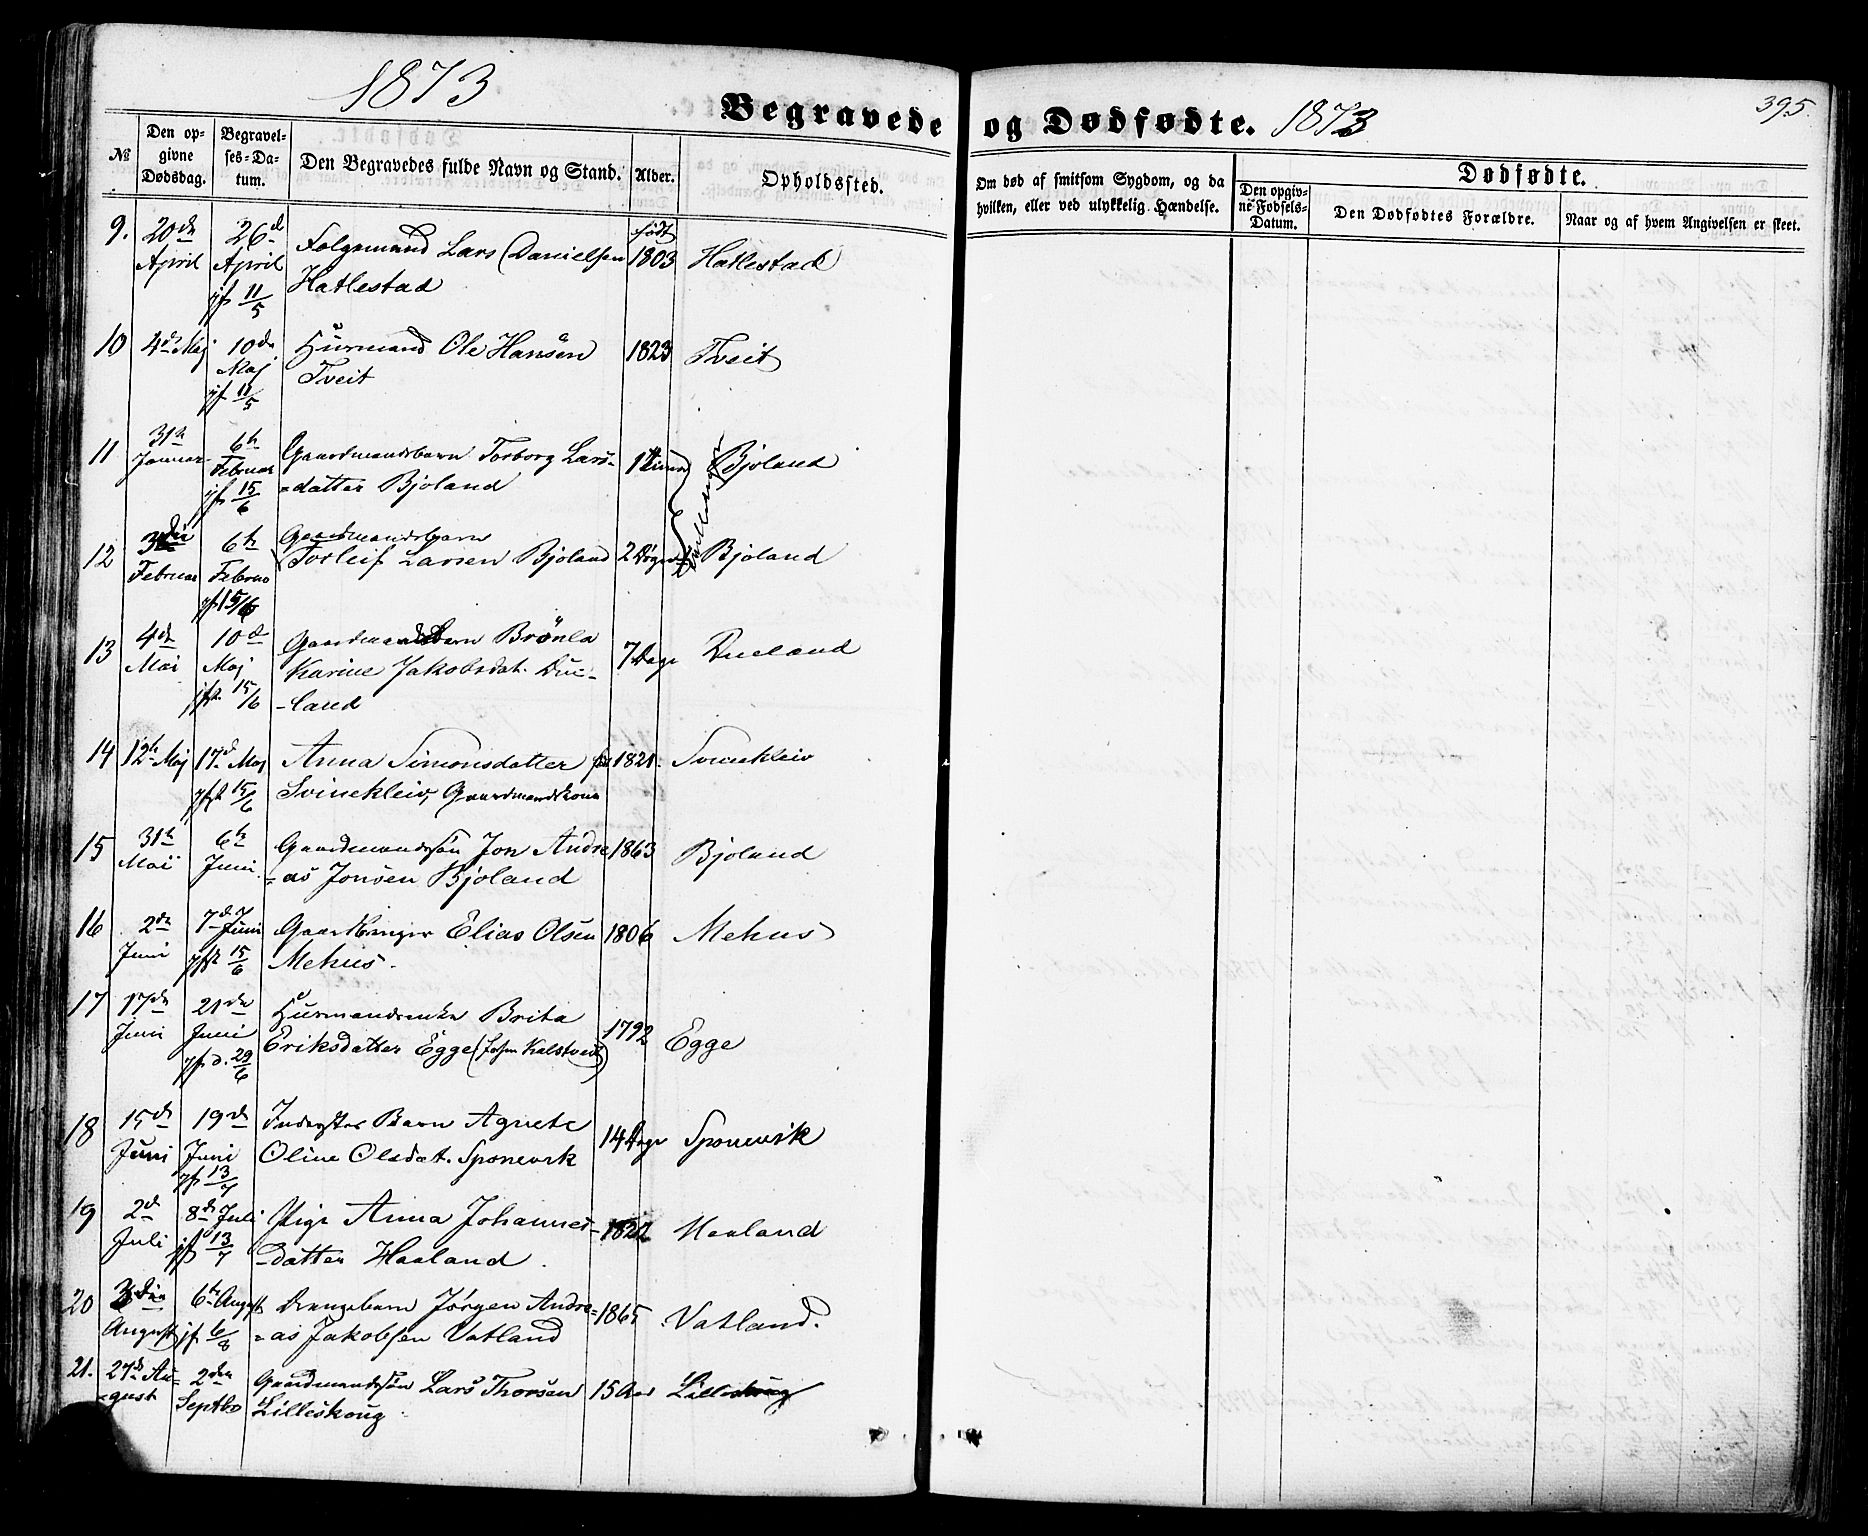 1873
Begravede og Dødfødte. 1873
395.
№
Den opgivne Dødsdag.
Begravelses-Datum.
Den Begravedes fulde Navn og Stand.
Alder.
Opholdssted.
Om død af smitsom Sygdom, og da hvilken, eller ved ulykkelig Hændelse.
Dødfødte.
Den opgivne Fødsels-Datum.
Den Dødfødtes Forældre.
Naar og af hvem Angivelsen er skeet.
9. 20de 26d født
April April Lars Danielsen 1803 Hatlestad
jf 11/5 Hatlestad
10 4de Maj 10de Huusmand Ole Hansen 1823 Tveit
Maj Tveit
jf 11/5
11 31te 6te Gaardmandsbarn Torborg Lars- Bjoland
Januar Februar =datter Bjoland
jf 15/6
Tvillinger
12 3die 6te Gaardmandsbarn
Februar Februa Torleif Larsen Bjoland 2 Døgn Bjoland
jf 15/6
13 4de 10de Gaardmandsbarn Brönla
Mai Maj Karine Jakobsdat. Due- 7 Dage Dueland
jfr. 15/6 -land
14 12te Maj 17d Maj Anna Simonsdatter 1821. Svinekleiv
jfr 15/6 Svinekleiv, Gaardmandskone
15 31te 6te Gaardmandssön Jon Andre 1863 Bjoland
Mai Juni =as Jonsen Bjoland
16 2de 7de Juni Elias Olsen 1806 Mehus
Juni jfr 15/6 Mehus.
17 17de 21de Huusmandsenke Brita 1792 Egge
Juni Juni Eriksdatter Egge
jf d. 29/6
18 15de 19de Inderster Barn Agnete 14 Dage Sponevik
Juni Juni Oline Olsdat. Sponevik
jf 13/7
19 2d 8de Juli Pige Anna Johannes- 1822 Haaland
Juli jf 13/7 -datter Haaland
20 3die 6te August Drengebarn Jørgen Andre= 1865 Vatland.
August jf 6/8 =as Jakobsen Vatland
21. 27de Au- 2den Gaardmandssön Lars Thorsen 15 Aar Lilleskoug
=gust Septbr Lilleskoug